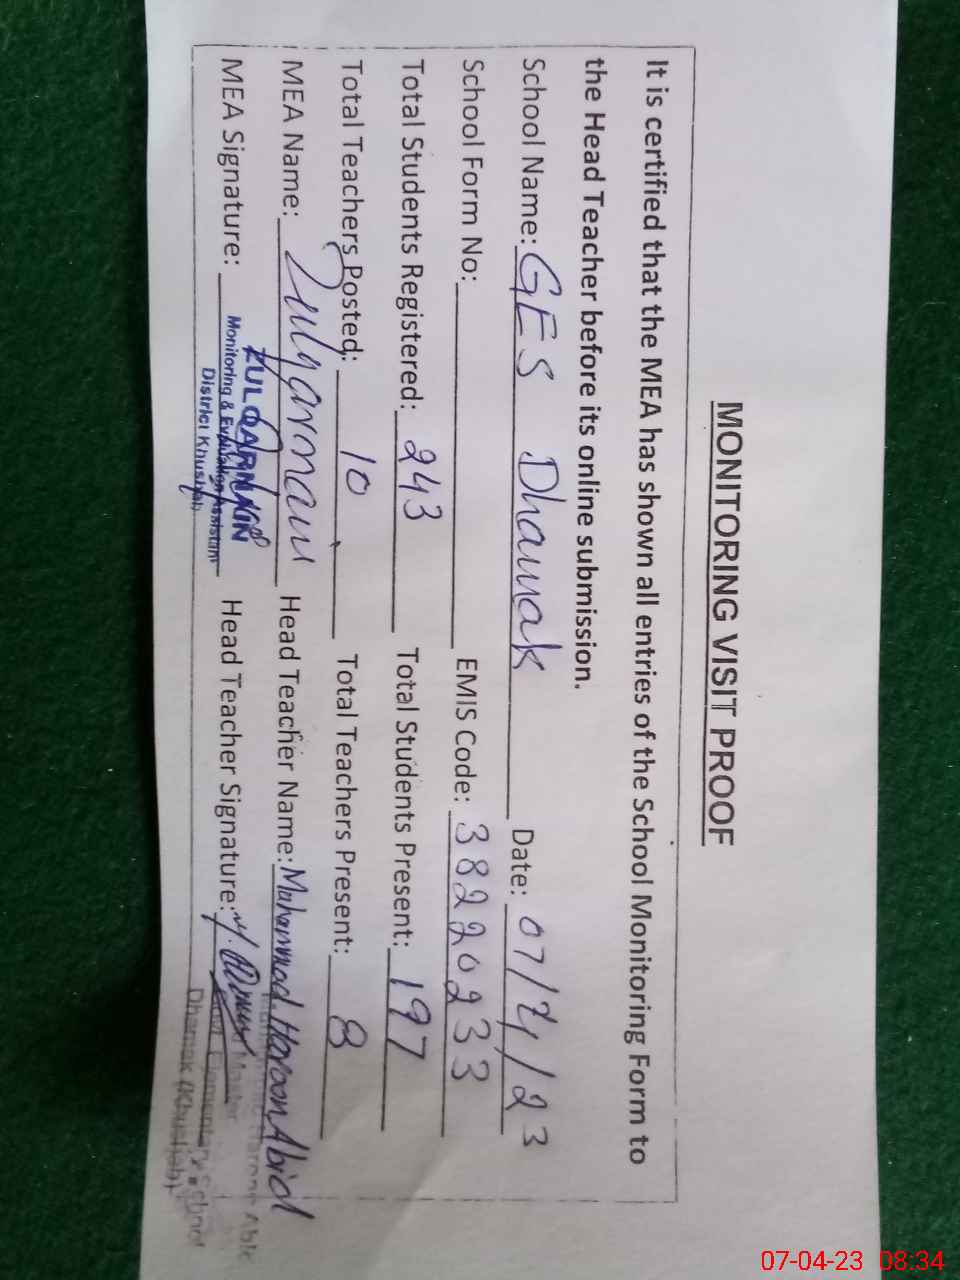 MONITORING VISIT PROOF
It is certified that the MEA has shown all entries of the School Monitoring Form to
the Head Teacher before its online submission.
School Name: GES Dhamak Date: 07/4/23
School Form No: EMIS Code: 38220233
Total Students Registered: 243 Total Students Present: 197
Total Teachers Posted: 10 Total Teachers Present: 8
MEA Name: Zulqarnain Head Teacher Name: Muhammad Haroon Abid
MEA Signature: Head Teacher Signature:
ZULQARNAIN
Monitoring & Evaluation Assistant
District Khushab
Master
Elementary School
Dhamak (Khushab)
07-04-23 08:34